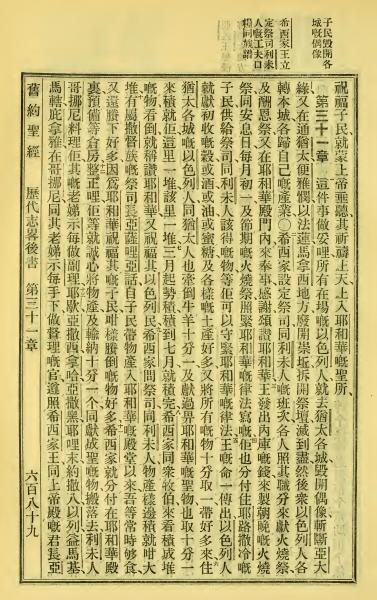 子民毀開各
城嘅偶像
希西家王立
定祭司利未
人嘅工夫口
糧同族譜
祝福子民就蒙上帝垂聽其祈禱上天上入耶和華嘅聖所
第三十一章 這件事做妥哩所有在場嘅以色列人就去猶太各城毀開偶像斬斷亞大
祿又在通猶太便雅憫以法蓮馬拿西地方廢開崇坵拆開祭壇滅到盡然後衆以色列人各
轉本城各歸自己嘅產業○希西家設定祭司同利未人嘅班次各人照其職分來獻火燒祭
及酬恩祭又在耶和華殿門內來奉事感謝頌讚耶和華王發出內庫嘅錢來製朝晚嘅火燒
祭同安息日每月初一及節期嘅火燒祭照緊耶和華嘅律法寫嘅佢也分付住耶路撒冷嘅
子民供給祭司同利未人該得嘅物等佢可以守緊耶和華嘅律法王嘅命一傳出以色列人
就獻初收嘅穀或酒或油或蜜糖及各樣嘅土產好多又將所有嘅物十分取一帶好多來住
猶太各城嘅以色列人同猶太人也牽倒牛羊十分一及獻過界耶和華嘅聖物也取十分一
來積就佢這里一堆該里一堆三月起勢積積到七月就積完希西家同衆牧伯來看積成堆
嘅物看倒就稱讚耶和華又祝福其以色列民希西家問祭司同利未人物產樣邊積就咁大
堆有屬撒督族嘅祭司長亞薩哩亞話自子民帶物產入耶和華嘅殿堂以來吾等常時够食
又還賸下好多因爲耶和華祝福其嘅子民咁樣賸倒嘅物好多希西家就分付在耶和華殿
裏預備等倉房整正哩佢等就誠心將物產及輸納十分一个同獻成聖嘅物搬落去利未人
哥挪尼料理佢其嘅老娣示每做副理耶歇亞撒西拿哈亞撒黑耶哩末約撒入以列益馬基
馬轄庇拿雅在哥挪尼同其老娣示每手下做督理嘅官遵照希西家王同上帝殿嘅君長亞
舊約聖經 歷代志畧後書 第三十一章 六百八十九